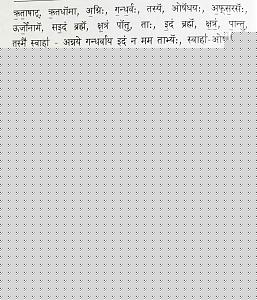 ऋ॒ता॒षाट्, ऋ॒तधा॑मा, अ॒ग्निः, ग॒न्ध॒र्वः, तस्य॑, ओष॑धयः, अ॒प्स॒रसः॑,
ऊर्जो॒नाम॑, सइ॒दं ब्रह्म॑, क्ष॒त्रं पा॑तु, ताः, इ॒दं ब्रह्म॑, क्ष॒त्रं, पा॒न्तु॒,
तस्मै॒ स्वाहा॑ - अग्नये गन्धर्वाय इदं न मम ताभ्यः॒, स्वाहा॑-